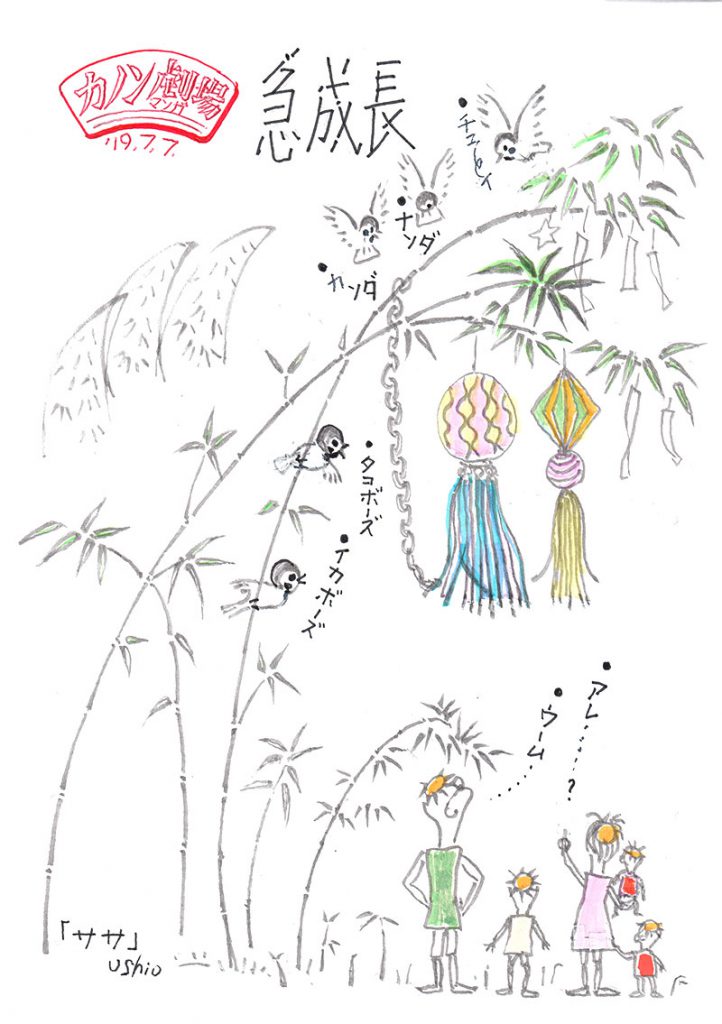 カノン劇場
マンガ
'19.7.7.
急成長
・チューセイ
・ナンダ
・カンダ
・タコボーズ
・イカボーズ
・アレ……?
・ウーム……
「ササ」
ushio